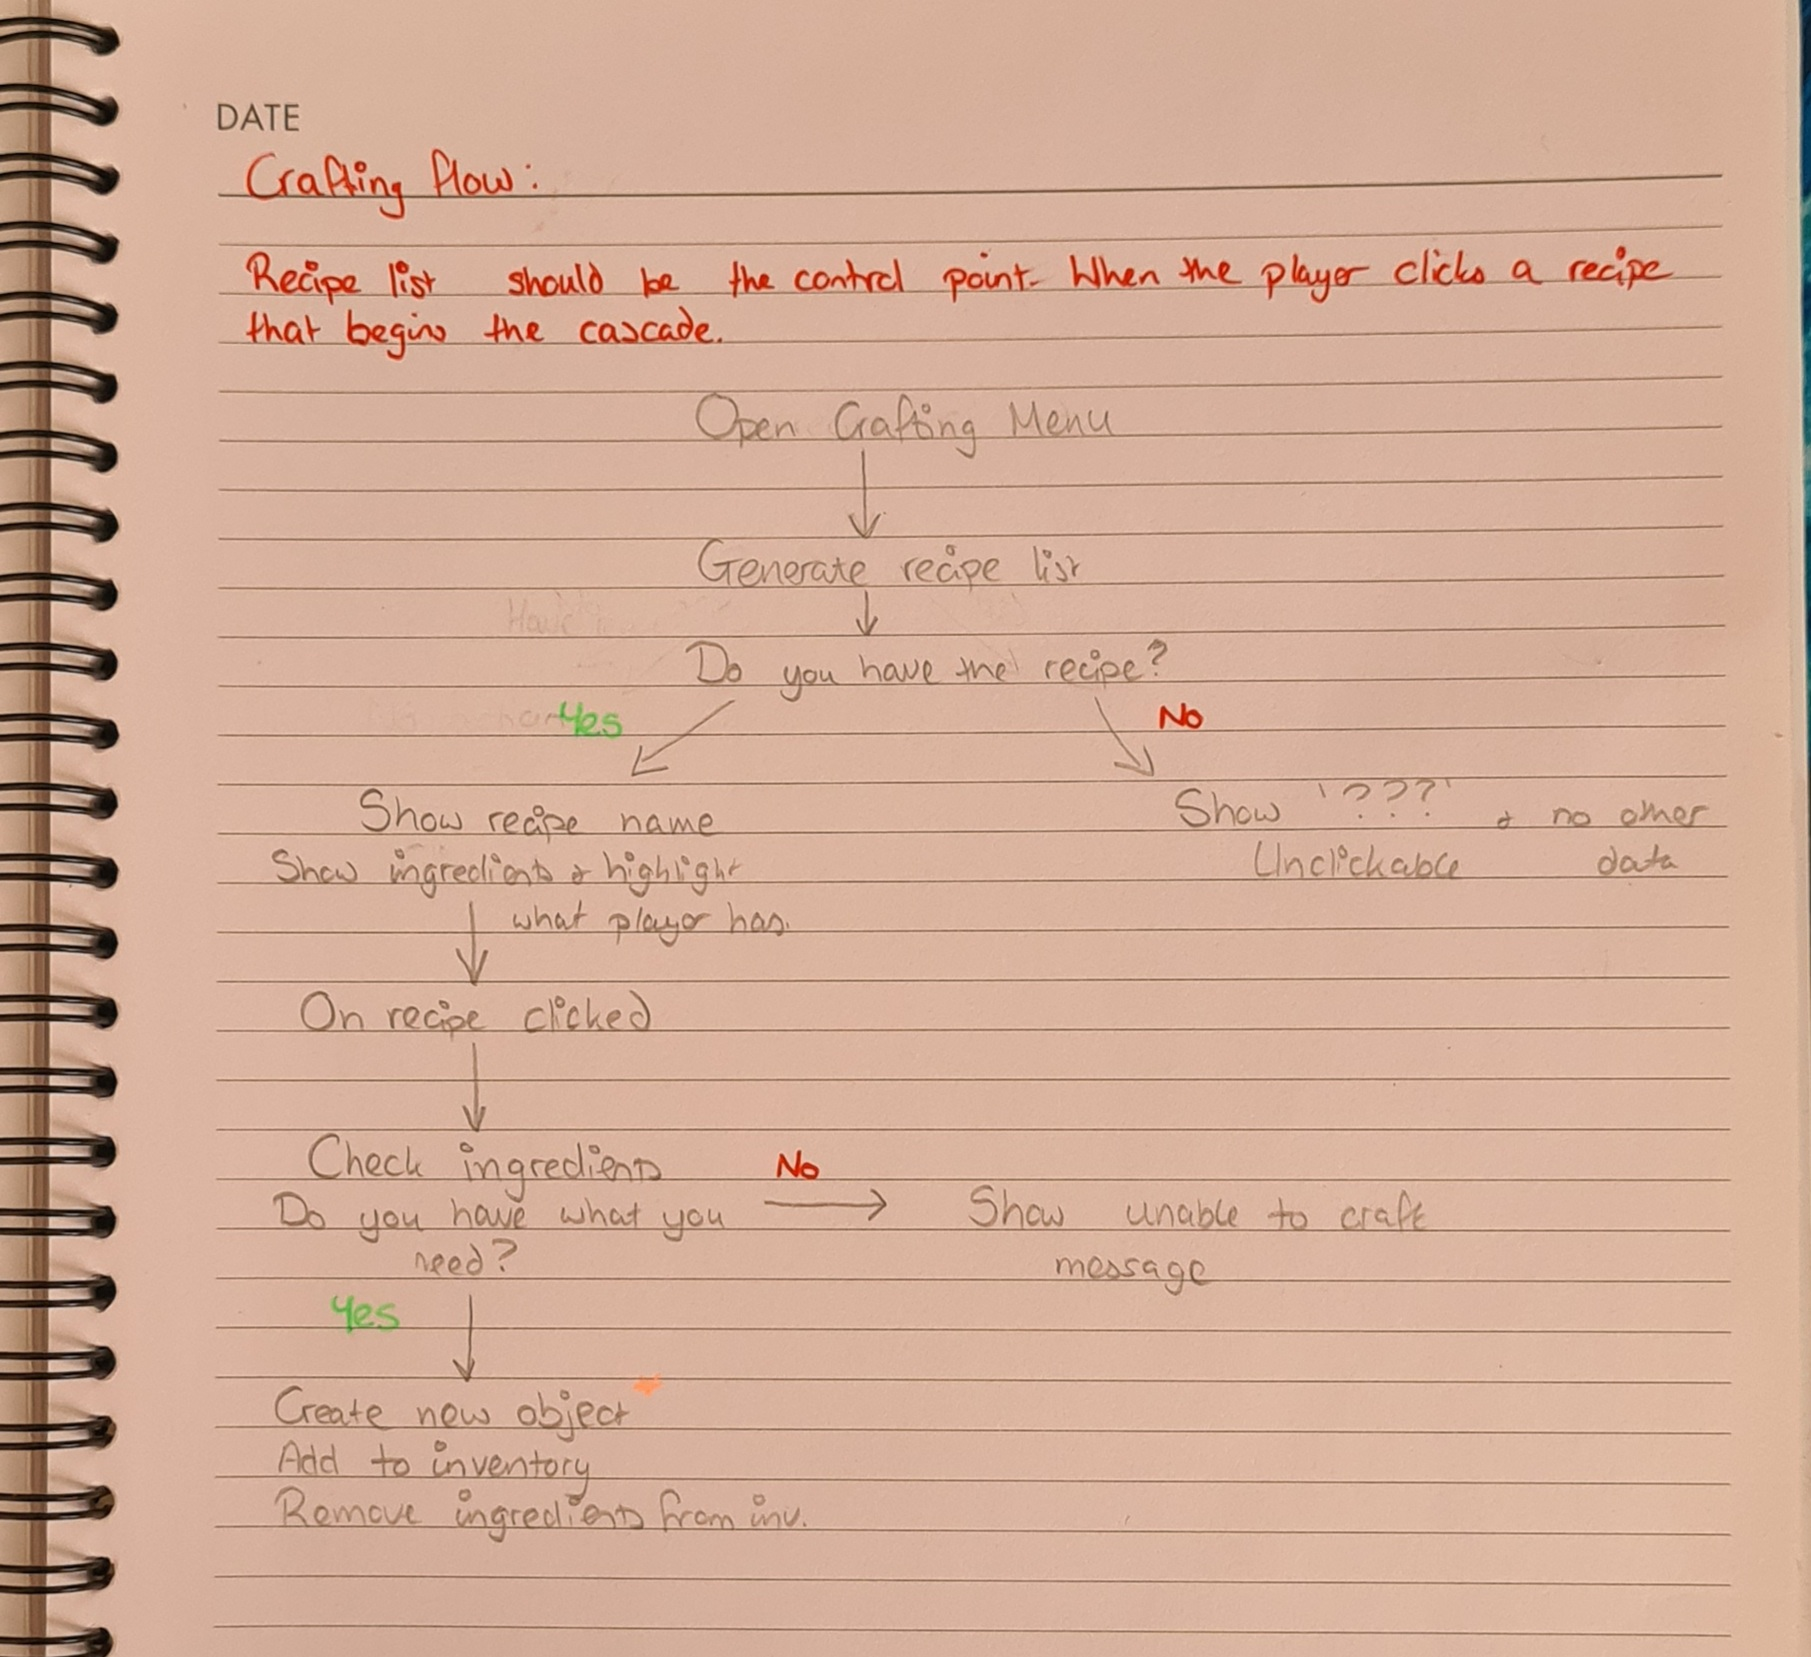 DATE
Crafting flow:
Recipe list should be the control point. When the player clicks a recipe
that begins the cascade.
Open Crafting Menu
Generate recipe list
Do you have the recipe?
Yes
No
Show recipe name
Show ingredients & highlight
what player has.
Show '???' & no other
Unclickable data
On recipe clicked
Check ingredients
No
Do you have what you
need?
Show unable to craft
message
Yes
Create new object
Add to inventory
Remove ingredients from inv.